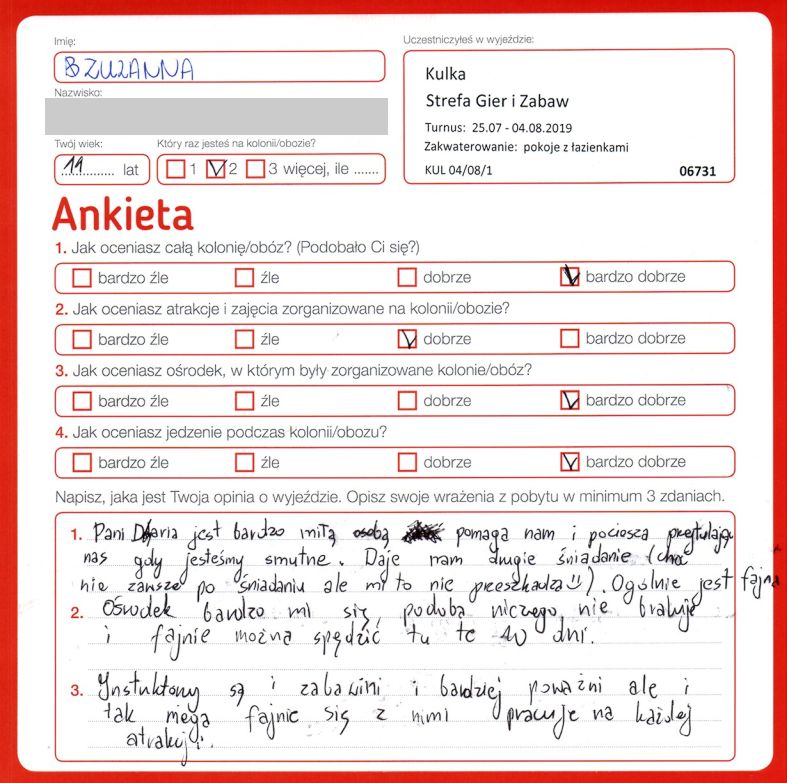 Imię:
ZUZANNA
Nazwisko:
Twój wiek:
11 lat
Który raz jesteś na kolonii/obozie?
1 2 3 więcej, ile .......
Uczestniczyłeś w wyjeździe:
Kulka
Strefa Gier i Zabaw
Turnus: 25.07 - 04.08.2019
Zakwaterowanie: pokoje z łazienkami
KUL 04/08/1 06731
Ankieta
1. Jak oceniasz całą kolonię/obóz? (Podobało Ci się?)
bardzo źle źle dobrze bardzo dobrze
2. Jak oceniasz atrakcje i zajęcia zorganizowane na kolonii/obozie?
bardzo źle źle dobrze bardzo dobrze
3. Jak oceniasz ośrodek, w którym były zorganizowane kolonie/obóz?
bardzo źle źle dobrze bardzo dobrze
4. Jak oceniasz jedzenie podczas kolonii/obozu?
bardzo źle źle dobrze bardzo dobrze
Napisz, jaka jest Twoja opinia o wyjeździe. Opisz swoje wrażenia z pobytu w minimum 3 zdaniach.
1. Pani Daria jest bardzo miłą osobą pomaga nam i pociesza przytulając
nas gdy jesteśmy smutne. Daje nam drugie śniadanie (choć
nie zawsze po śniadaniu ale mi to nie przeszkadza). Ogólnie jest fajna
2. Ośrodek bardzo mi się podoba niczego nie brakuje
i fajnie można spędzić tu te 10 dni.
3. Instuktorzy są i zabawini i bardziej poważni ale i
tak mega fajnie się z nimi pracuje na każdej
atrakcji.